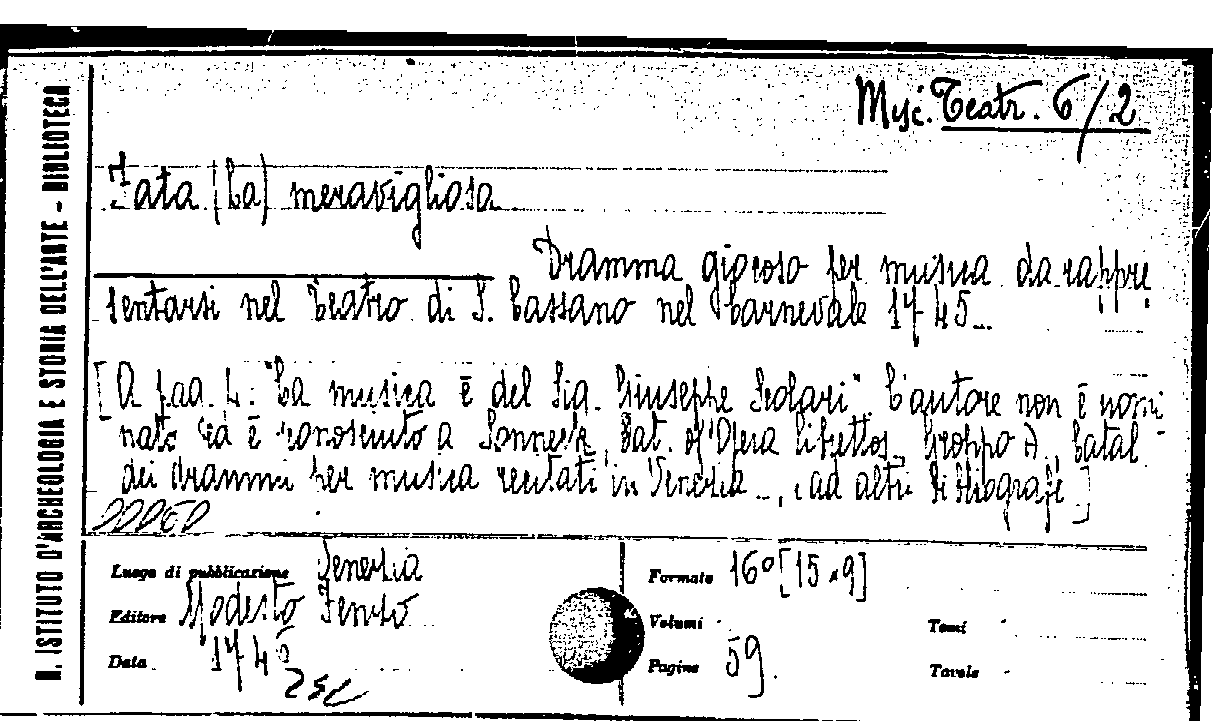 R. ISTITUTO D'ARCHEOLOGIA E STORIA DELL'ARTE - BIBLIOTECA
Misc. Teatr. 6/2
Fata (La) meravigliosa
Dramma giocoso per musica da rappre
sentarsi nel Teatro di S. Cassano nel Carnevale 1745..
[A pag. 4: "La musica è del Sig. Giuseppe Scolari". L'autore non è nomi
nato ed è sconosciuto a Sonneck, Cat. of Opera librettos, Groppo A., Catal.
dei drammi per musica recitati in Venezia..., ad altri bibliografi]
Luogo di pubblicazione Venezia
Formato 16° [15x9]
Editore Modesto Fenzo
Volumi
Tomi
Data 174
Pagine 59.
Tavole